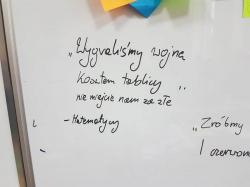 „Wygraliśmy wojnę
Kosztem tablicy"
nie miejcie nam za złe
- Matematycy
„Zróbmy
1 czerwca